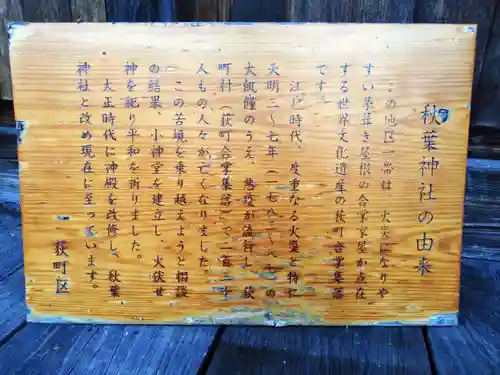 秋葉神社の由来
この地区一帯は、火災になりや
すい茅葺き屋根の合掌家屋が点在
する世界文化遺産の荻町合掌集落
です。
江戸時代、度重なる火災と特に
天明二〜七年（一七八二〜八七）の
大飢饉のうえ、悪疫が流行し、荻
町村（荻町合掌集落）で二百二十
人もの人々が亡くなりました。
この苦境を乗り越えようと相談
の結果、小神堂を建立し、火伏せ
神を祀り平和を祈りました。
大正時代に神殿を改修し、秋葉
神社と改め現在に至っています。
荻町区